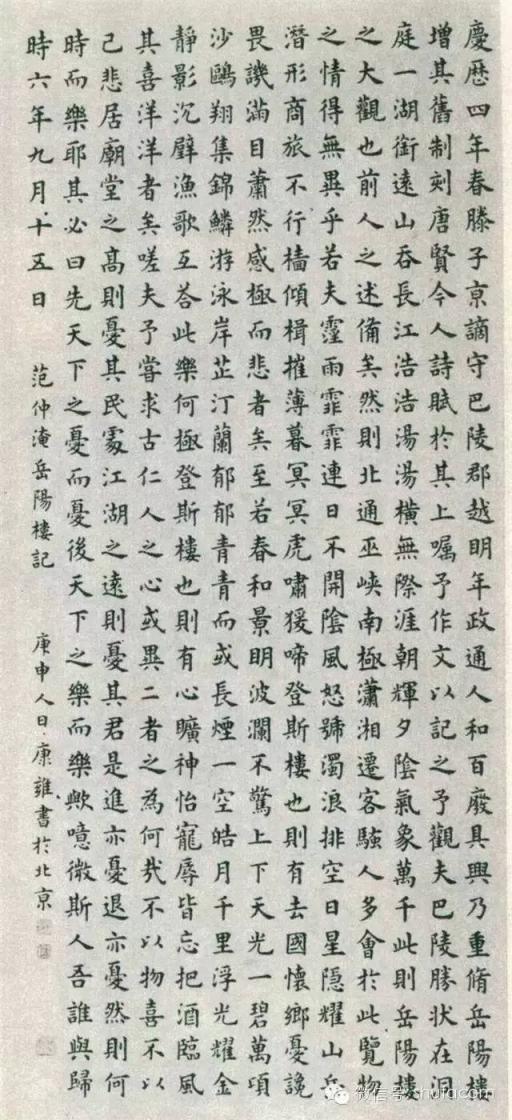 慶歷四年春滕子京謫守巴陵郡越明年政通人和百廢具興乃重脩岳陽樓
增其舊制刻唐賢今人詩賦於其上囑予作文以記之予觀夫巴陵勝狀在洞
庭一湖銜遠山吞長江浩浩湯湯橫無際涯朝輝夕陰氣象萬千此則岳陽樓
之大觀也前人之述備矣然則北通巫峽南極瀟湘遷客騷人多會於此覽物
之情得無異乎若夫霪雨霏霏連日不開陰風怒號濁浪排空日星隱耀山岳
潛形商旅不行檣傾楫摧薄暮冥冥虎嘯猨啼登斯樓也則有去國懷鄉憂讒
畏譏滿目蕭然感極而悲者矣至若春和景明波瀾不驚上下天光一碧萬頃
沙鷗翔集錦鱗游泳岸芷汀蘭郁郁青青而或長煙一空皓月千里浮光耀金
靜影沉璧漁歌互荅此樂何極登斯樓也則有心曠神怡寵辱皆忘把酒臨風
其喜洋洋者矣嗟夫予嘗求古仁人之心或異二者之為何哉不以物喜不以
己悲居廟堂之高則憂其民處江湖之遠則憂其君是進亦憂退亦憂然則何
時而樂耶其必曰先天下之憂而憂後天下之樂而樂歟噫微斯人吾誰與歸
時六年九月十五日 范仲淹岳陽樓記 庚申人日康雍書於北京
微信号: shufacom